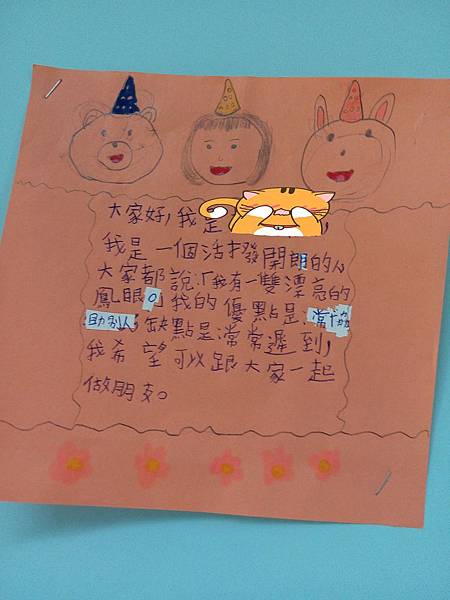 大家好，我是
我是一個活撥開朗的人，
大家都說：「我有一雙漂亮的
鳳眼。」我的優點是：常協
助別人，缺點是：常常遲到，
我希望可以跟大家一起
做朋友。